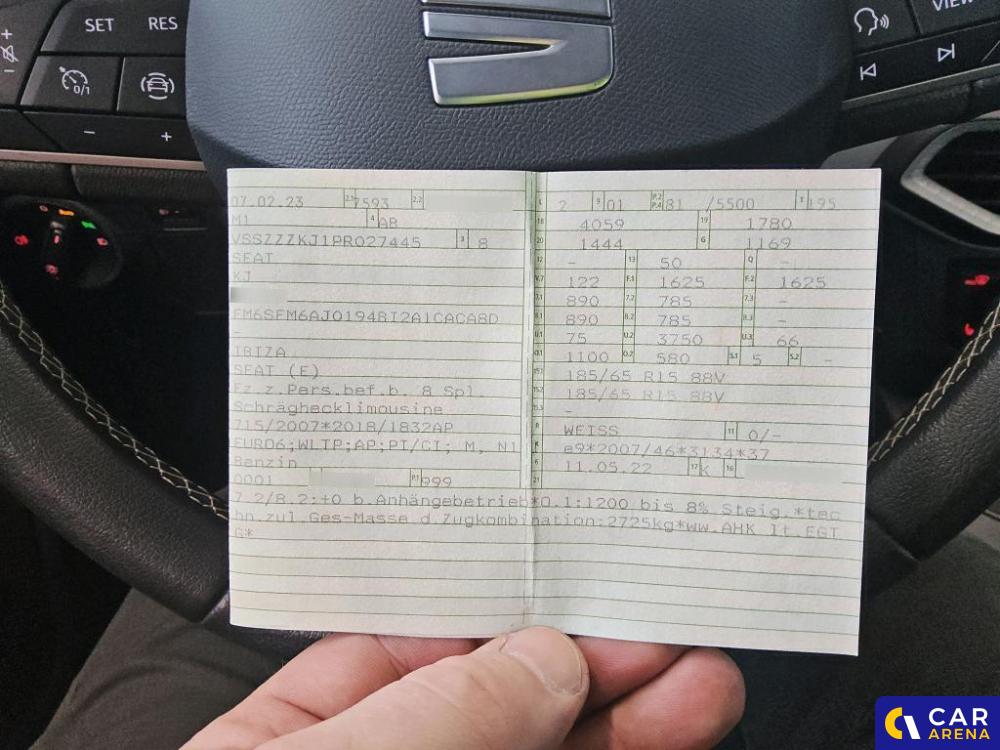 SET RES
0/1
VIEW
07.02.23 2.1 7593 2.2
M1 4 AB
VSSZZZKJ1PR027445 3 8
SEAT
KJ
FM6SFM6AJ0194RI2A1CACA8D
-
IBIZA
SEAT (E)
Fz.z.Pers.bef.b. 8 Spl.
Schräghecklimousine
715/2007*2018/1832AP
EURO6;WLTP;AP;PI/CI; M, N1
Benzin
0001 P.1 999
L 2 9 01 P.2 P.4 81 /5500 T 195
18 4059 19 1780
20 1444 G 1169
12 - 13 50 Q -
V.7 122 F.1 1625 F.2 1625
7.1 890 7.2 785 7.3 -
8.1 890 8.2 785 8.3 -
U.1 75 U.2 3750 U.3 66
O.1 1100 O.2 580 S.1 5 S.2 -
15.1 185/65 R15 88V
15.2 185/65 R15 88V
15.3 -
R WEISS 11 0/-
K e9*2007/46*3134*37
6 11.05.22 17 K 16
21
7.2/8.2:+0 b.Anhängebetrieb*O.1:1200 bis 8% Steig.*tec
hn.zul.Ges-Masse d.Zugkombination:2725kg*ww.AHK lt.EGT
G*
CAR
ARENA